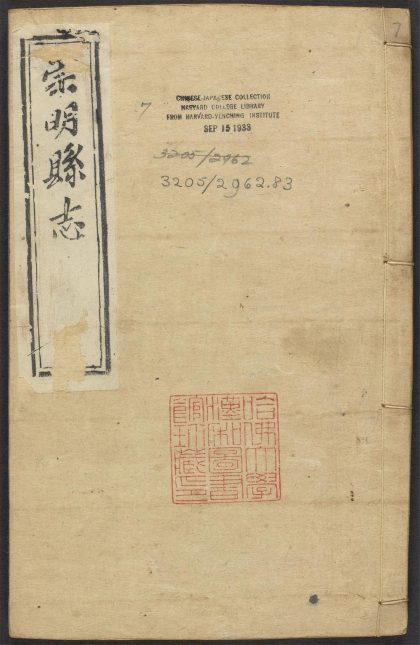 崇明縣志
7
7
CHINESE-JAPANESE COLLECTION
HARVARD COLLEGE LIBRARY
FROM HARVARD-YENCHING INSTITUTE
SEP 15 1933
3205/2962
3205/2962.83
哈佛大學
漢和圖書
館珍藏印